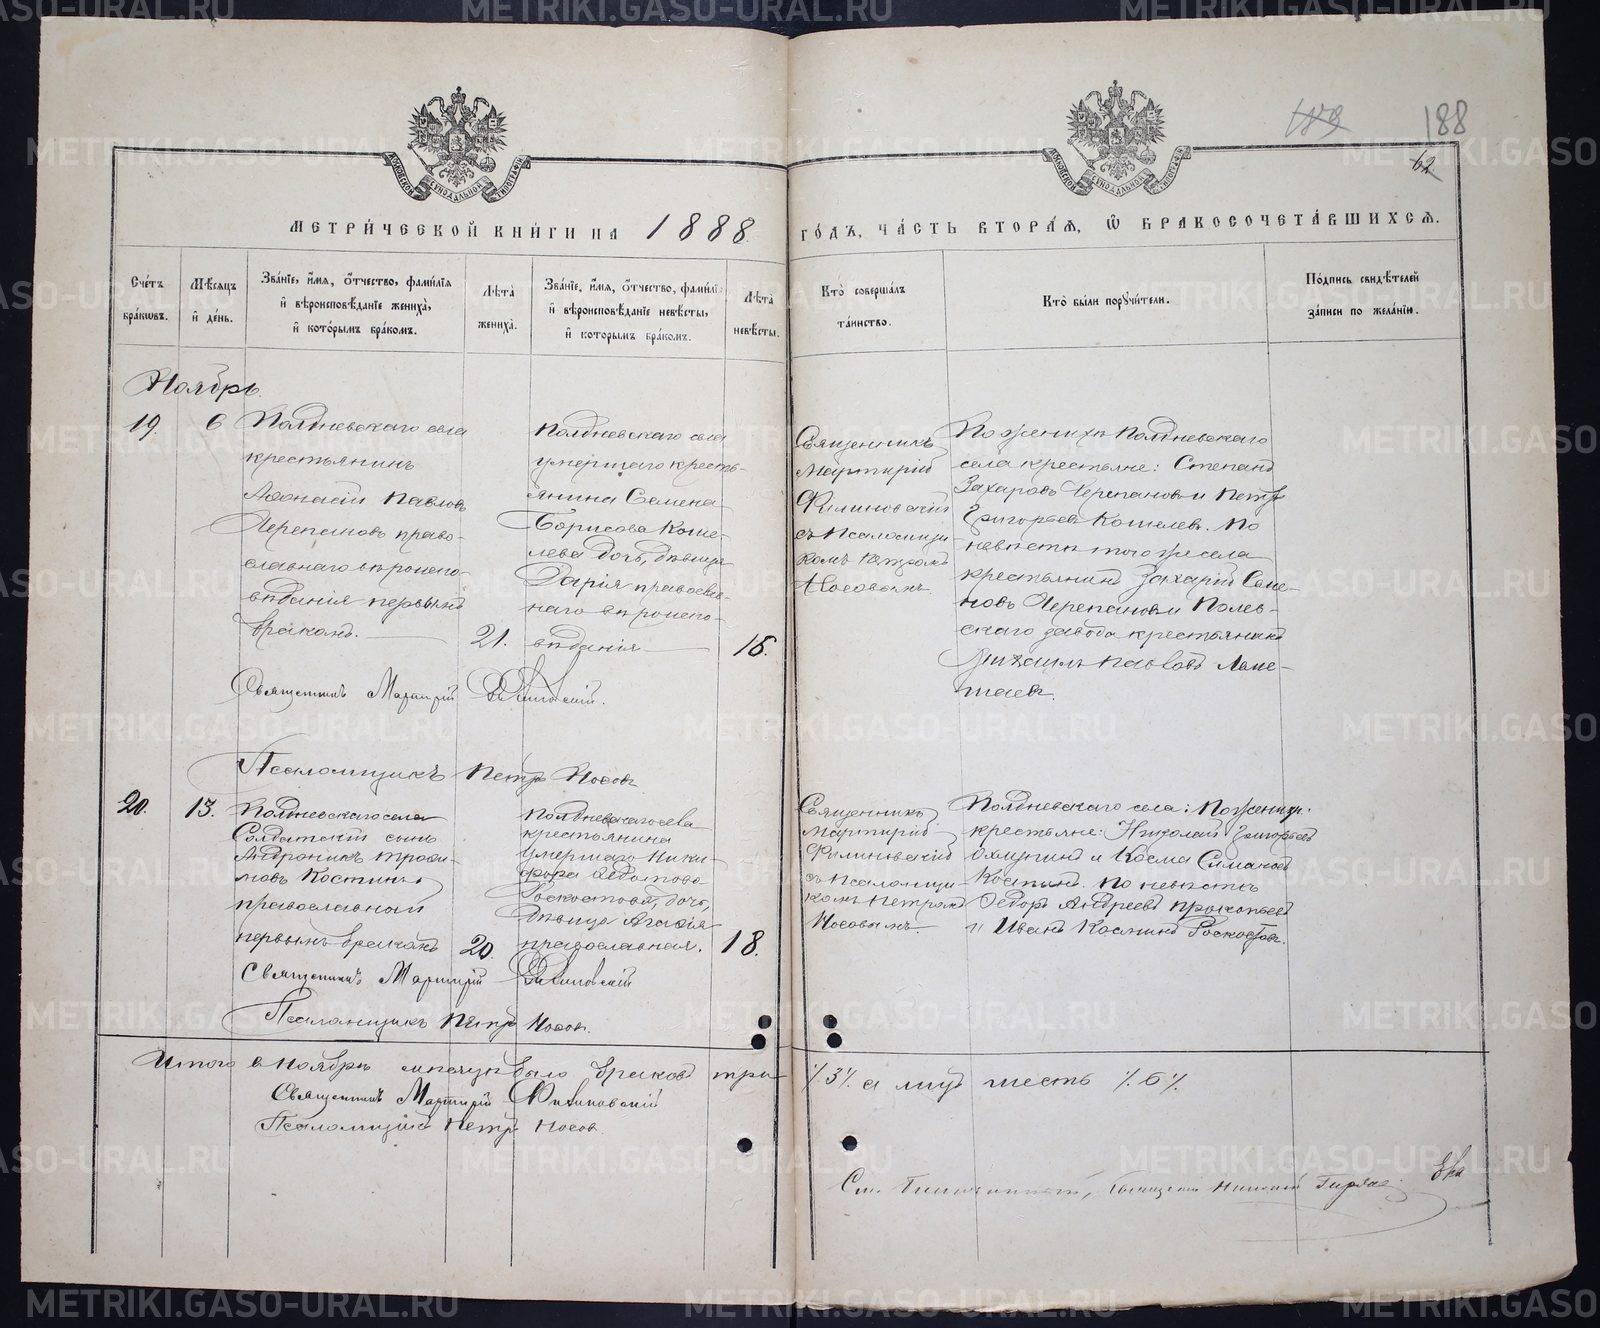 188
62
МОСКОВСКОЙ СѴНОДАЛЬНОЙ ТИПОГРАФІИ
МОСКОВСКОЙ СѴНОДАЛЬНОЙ ТИПОГРАФІИ
МЕТРИ́ЧЕСКОЙ КНИ́ГИ НА 1888 ГО́ДЪ, ЧА́СТЬ ВТОРА́Я, Ѽ БРАКОСОЧЕТА́ВШИХСЯ.
Сче́тъ бра́кѡвъ.
Мѣ́сяцъ и де́нь.
Зва́нїе, и́мя, о́тчество, фами́лїя и вѣроисповѣ́данїе жениха̀, и кото́рымъ бра́комъ.
Лѣ́та жениха̀.
Зва́нїе, и́мя, о́тчество, фами́лїя и вѣроисповѣ́данїе невѣ́сты, и кото́рымъ бра́комъ.
Лѣ́та невѣ́сты.
Кто̀ соверша́лъ та́инство.
Кто̀ бы́ли поручи́тели.
По́дпись свидѣ́телей за́писи по жела́нїю.
Ноябрь.
19. 6
Полдневскаго села
крестьянинъ
Афонасій Павловъ
Черепановъ право-
славнаго вѣроиспо-
вѣданія первымъ
бракомъ. 21.
Полдневскаго села
умершаго кресть-
янина Семена
Борисова Коше-
лева дочь, дѣвица
Дарія православ-
наго вѣроиспо-
вѣданія 16.
Священникъ
Мартирій
Филиновскій
съ Псаломщи-
комъ Петромъ
Носовымъ.
По женихѣ Полдневскаго
села крестьяне: Степанъ
Захаровъ Черепановъ и Петръ
Григорьевъ Кошелевъ. По
невѣстѣ того же села
крестьянинъ Захарій Семе-
новъ Черепановъ и Полев-
скаго завода крестьянинъ
Михаилъ Павловъ
Священникъ Мартирій Филиновскій.
Псаломщикъ Петръ Носовъ
20. 13.
Полдневскаго села
Солдатскій сынъ
Андроникъ Трофи-
мовъ Костинъ
православный
первымъ бракомъ 20.
Полдневскаго села
крестьянина
умершаго Ники-
фора Федотова
дочь,
дѣвица Агафія
православная. 18.
Священникъ
Мартирій
Филиновскій
съ Псаломщи-
комъ Петромъ
Носовымъ.
Полдневскаго села: По женихѣ
крестьяне: Николай Григорьевъ
и Косма
Костинъ. По невѣстѣ
Ѳедоръ Андреевъ Прокопьевъ
и Иванъ Косминъ
Священникъ Мартирій Филиновскій
Псаломщикъ Петръ Носовъ.
Итого въ Ноябрѣ мѣсяцѣ было браковъ три ./.3./. а лицъ шесть ./.6./.
Священникъ Мартирій Филиновскій
Псаломщикъ Петръ Носовъ
Священникъ Николай